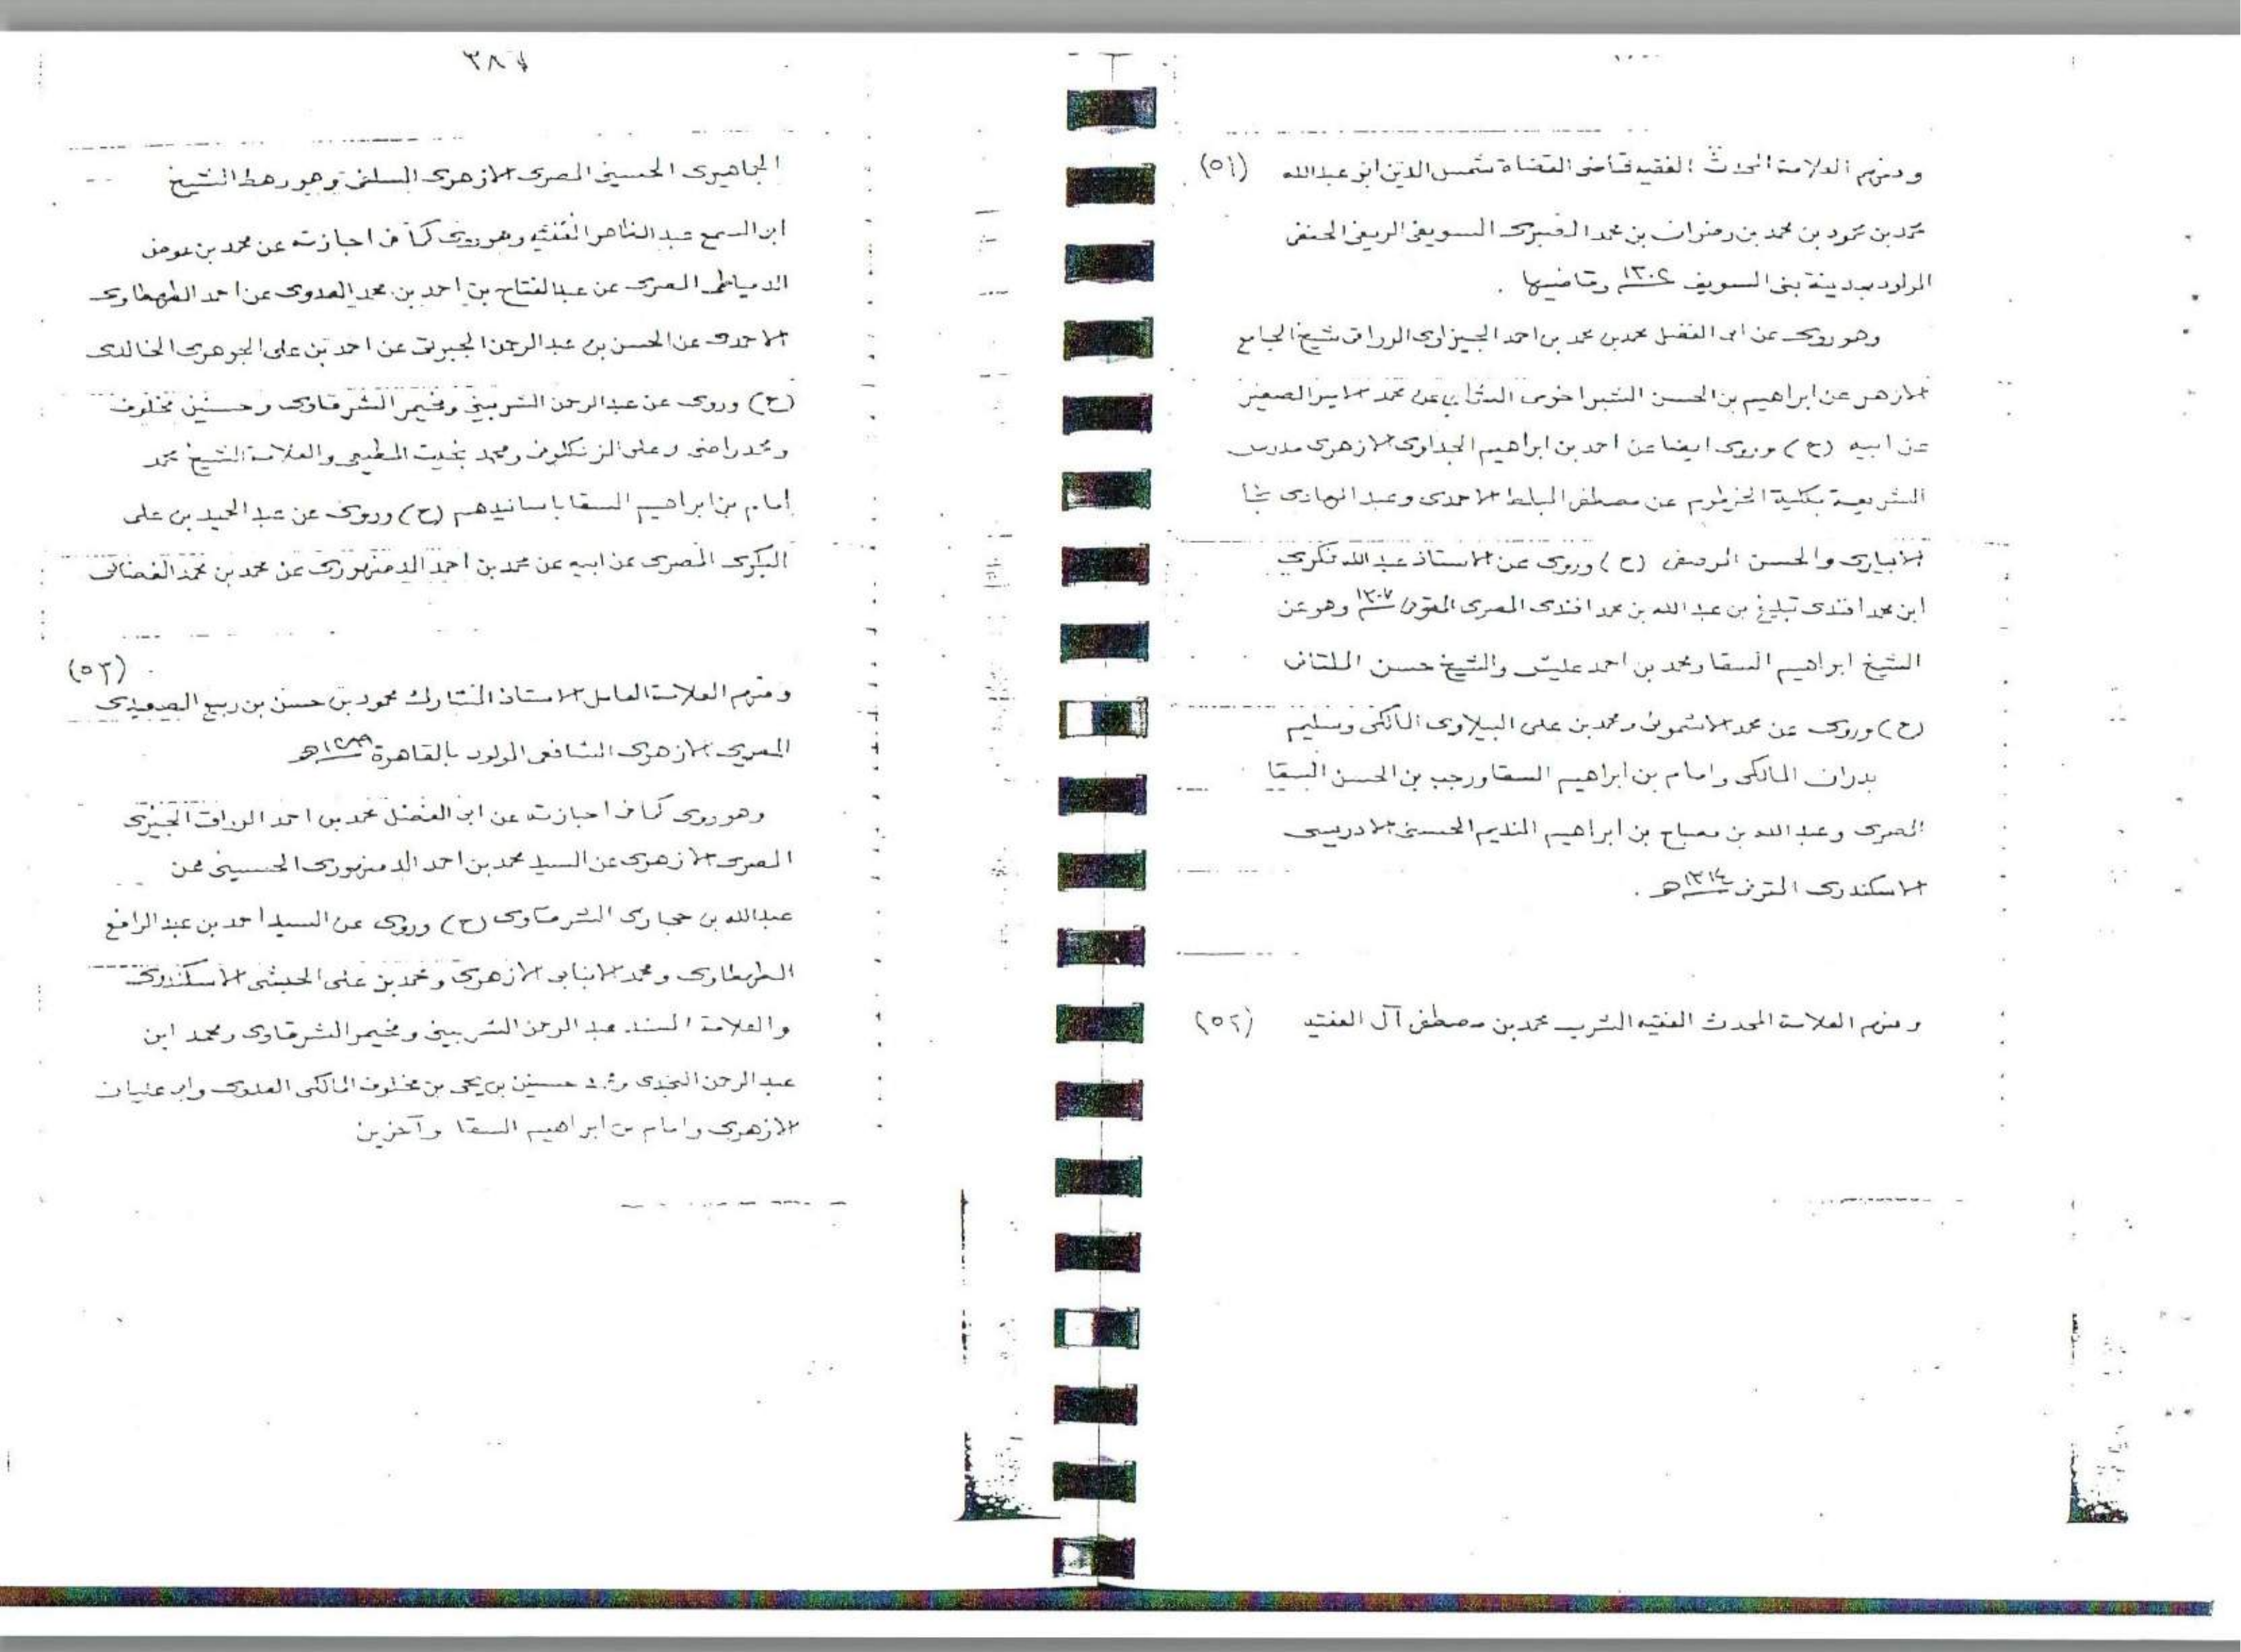 ومنهم العلامة المحدث الفقيه قاضى القضاة شمس الدين ابو عبدالله (٥١)
محمد بن محمود بن محمد بن رضوان بن محمد السويفى الريفى الحنفى
المولود بمدينة بنى السويف سنة ١٣٠٢ وقاضيها .
وهو روى عن ابى الفضل محمد بن محمد بن احمد الجيزاوى الوراقى شيخ الجامع
الازهر عن ابراهيم بن الحسن الشبراخوى عن محمد الامير الصغير
عن ابيه (ح) وروى ايضا عن احمد بن ابراهيم الجداوى الازهرى مدرس
الشريعة بكلية الخرطوم عن مصطفى المبلط الاحمدى وعبد الهادى نجا
الابيارى والحسن المرصفى (ح) وروى عن الاستاذ عبد الله فكرى
ابن محمد افندى بليغ بن عبد الله بن محمد افندى المصرى المتوفى سنة ١٣٠٧ وهو عن
الشيخ ابراهيم السقا ومحمد بن احمد عليش والشيخ حسن الملتانى
(ح) وروى عن محمد الاشمونى ومحمد بن على الببلاوى المالكى وسليم
بدران المالكى وامام بن ابراهيم السقا ورجب بن الحسن السقا
المصرى وعبد الله بن مصباح بن ابراهيم النديم الحسنى الادريسى
الاسكندرى المتوفى سنة ١٣١٤هـ .
ومنهم العلامة المحدث الفقيه الشريف محمد بن مصطفى آل الفقيه (٥٢)
٣٨
الجماهيرى الحسينى المصرى الازهرى السلفى وهو رهط الشيخ
ابى السمح عبد الظاهر الفقيه وهو روى كما فى اجازته عن محمد بن عوض
الدمياطى المصرى عن عبد الفتاح بن احمد بن محمد العدوى عن احمد الطهطاوى
الاحمدى عن الحسن بن عبد الرحمن الجبرتى عن احمد بن على الجوهرى الخالدى
(ح) وروى عن عبد الرحمن الشربينى ومخيمر الشرقاوى وحسنين مخلوف
ومحمد راضى وعلى الزنكلونى ومحمد بخيت المطيعى والعلامة الشيخ محمد
إمام بن ابراهيم السقا باسانيدهم (ح) وروى عن عبد الحميد بن على
البكرى المصرى عن ابيه عن محمد بن احمد الدمنهورى عن محمد بن محمد الفضالى
(٥٣)
ومنهم العلامة العامل الاستاذ المشارك محمود بن حسن بن ربيع الصعيدى
المصرى الازهرى الشافعى المولود بالقاهرة سنة هـ
وهو روى كما فى اجازته عن ابى الفضل محمد بن احمد الوراقى الجيزى
المصرى الازهرى عن السيد محمد بن احمد الدمنهورى الحسينى عن
عبدالله بن حجازى الشرقاوى (ح) وروى عن السيد احمد بن عبد الرافع
الطهطاوى ومحمد الانبابى الازهرى ومحمد بن على الحبشى الاسكندرى
والعلامة المسند عبد الرحمن الشربينى ومخيمر الشرقاوى ومحمد ابن
عبد الرحمن البخدى ومحمد حسنين بن يحى بن مخلوف المالكى العدوى وابى عليان
الازهرى وامام بن ابراهيم السقا وآخرين